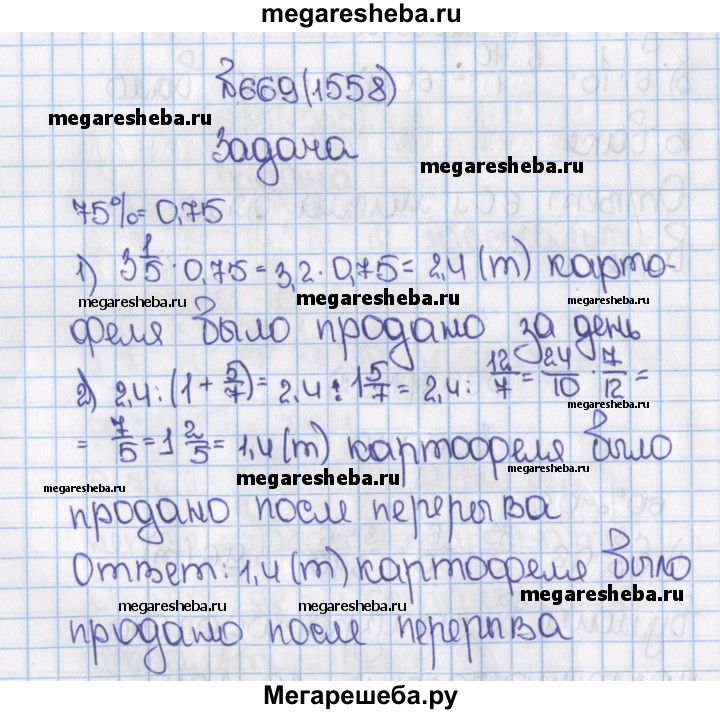 megaresheba.ru
№669(1558)
megaresheba.ru
Задача
megaresheba.ru
75%=0,75
1) 3 1/5 · 0,75 = 3,2 · 0,75 = 2,4 (т) карто-
megaresheba.ru megaresheba.ru megaresheba.ru
феля было продано за день
megaresheba.ru
2) 2,4 : (1 + 5/7) = 2,4 : 1 5/7 = 2,4 : 12/7 = 24/10 · 7/12 =
megaresheba.ru
= 7/5 = 1 2/5 = 1,4 (т) картофеля было
megaresheba.ru
megaresheba.ru megaresheba.ru
продано после перерыва
Ответ: 1,4 (т) картофеля было
megaresheba.ru
megaresheba.ru megaresheba.ru
продано после перерыва
Мегарешеба.ру